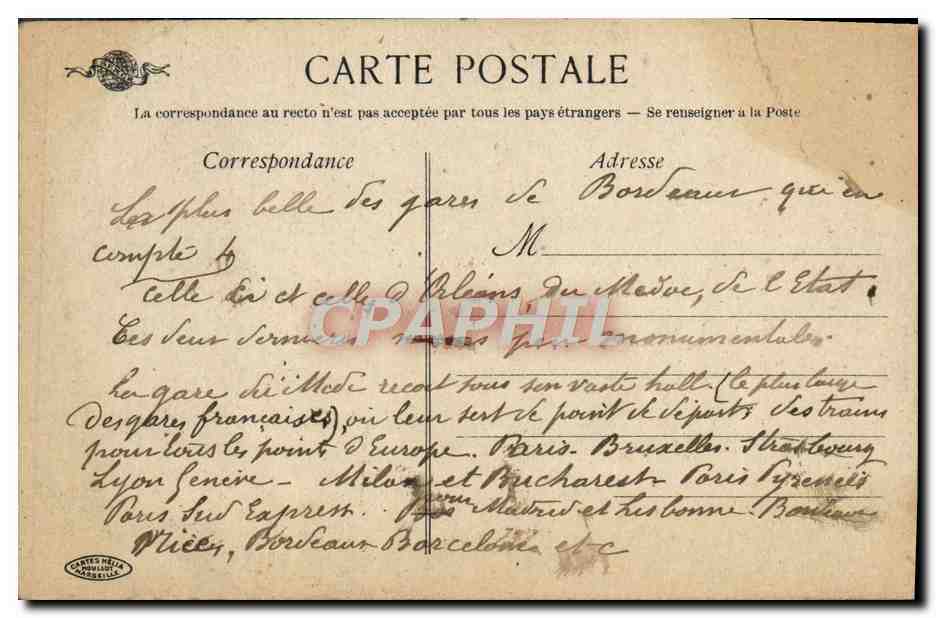 CARTE POSTALE
La correspondance au recto n'est pas acceptée par tous les pays étrangers — Se renseigner à la Poste
Correspondance
Adresse
La plus belle des gares de Bordeaux qui en
compte 4
M
celle ci et celle d'Orléans, du Médoc, de l'Etat.
Ces deux dernieres pas monumentales
CPAPHIL
La gare du Midi recoit sous son vaste hall (le plus large
des gares francaises), où leur sert de point de départ, des trains
pour tous les points d'Europe. Paris-Bruxelles. Strasbourg
Lyon Genève - Milan et Bucharest Paris Pyrenées
Paris Sud Express. pour Madrid et Lisbonne. Bordeaux
Nice, Bordeaux Barcelone etc
CARTES HÉLIA
MOULLOT
MARSEILLE